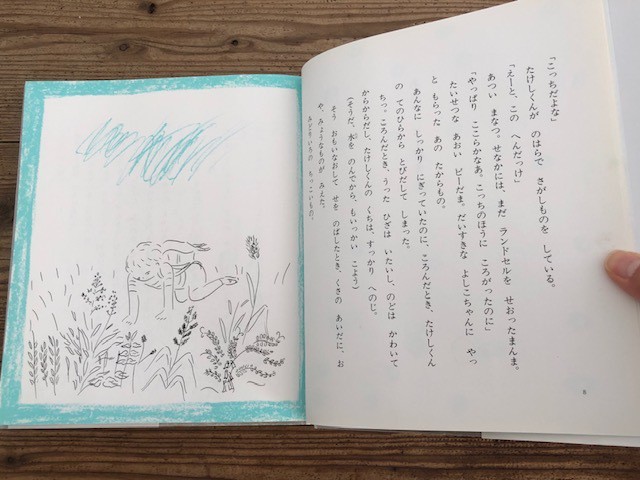 「こっちだよな」
たけしくんが　のはらで　さがしものを　している。
「えーと、この　へんだっけ」
あつい　まなつ。せなかには、まだ　ランドセルを　せおったまんま。
「やっぱり　ここらかなあ。こっちのほうに　ころがったのに」
たいせつな　あおい　ビーだま。だいすきな　よしこちゃんに　やっ
と　もらった　あの　たからもの。
あんなに　しっかり　にぎっていたのに、ころんだとき、たけしくん
の　てのひらから　とびだして　しまった。
ちっ。ころんだとき、うった　ひざは　いたいし、のどは　かわいて
からからだし、たけしくんの　くちは、すっかり　への じ。
（そうだ、水を　のんでから、もういっかい　こよう）
そう　おもいなおして　せを　のばしたとき、くさの　あいだに、お
や、みょうなものが　みえた。
みどりいろの　ちっこいもの。
8